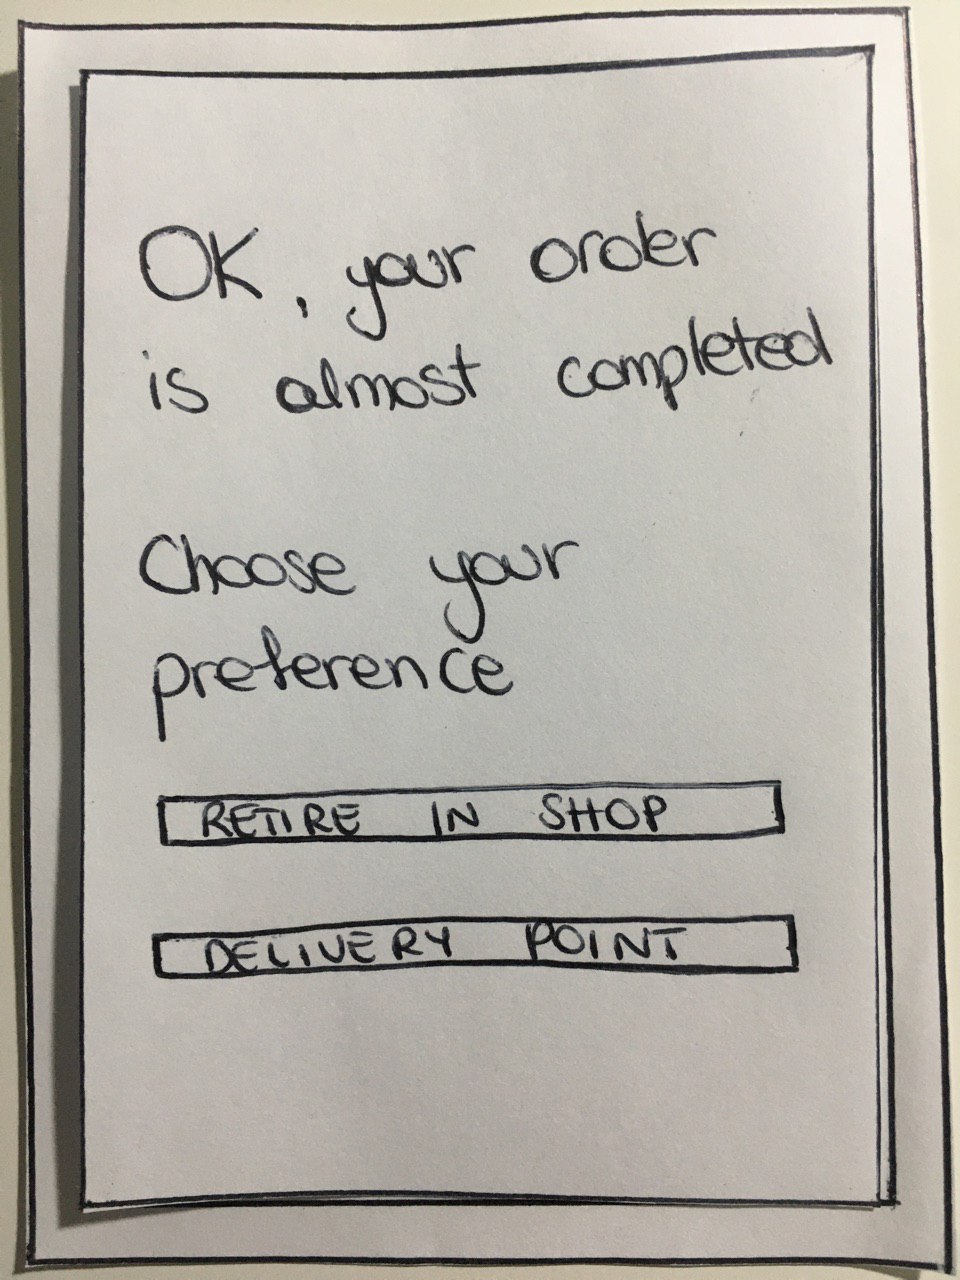 OK, your order
is almost completed
Choose your
preference
RETIRE IN SHOP
DELIVERY POINT